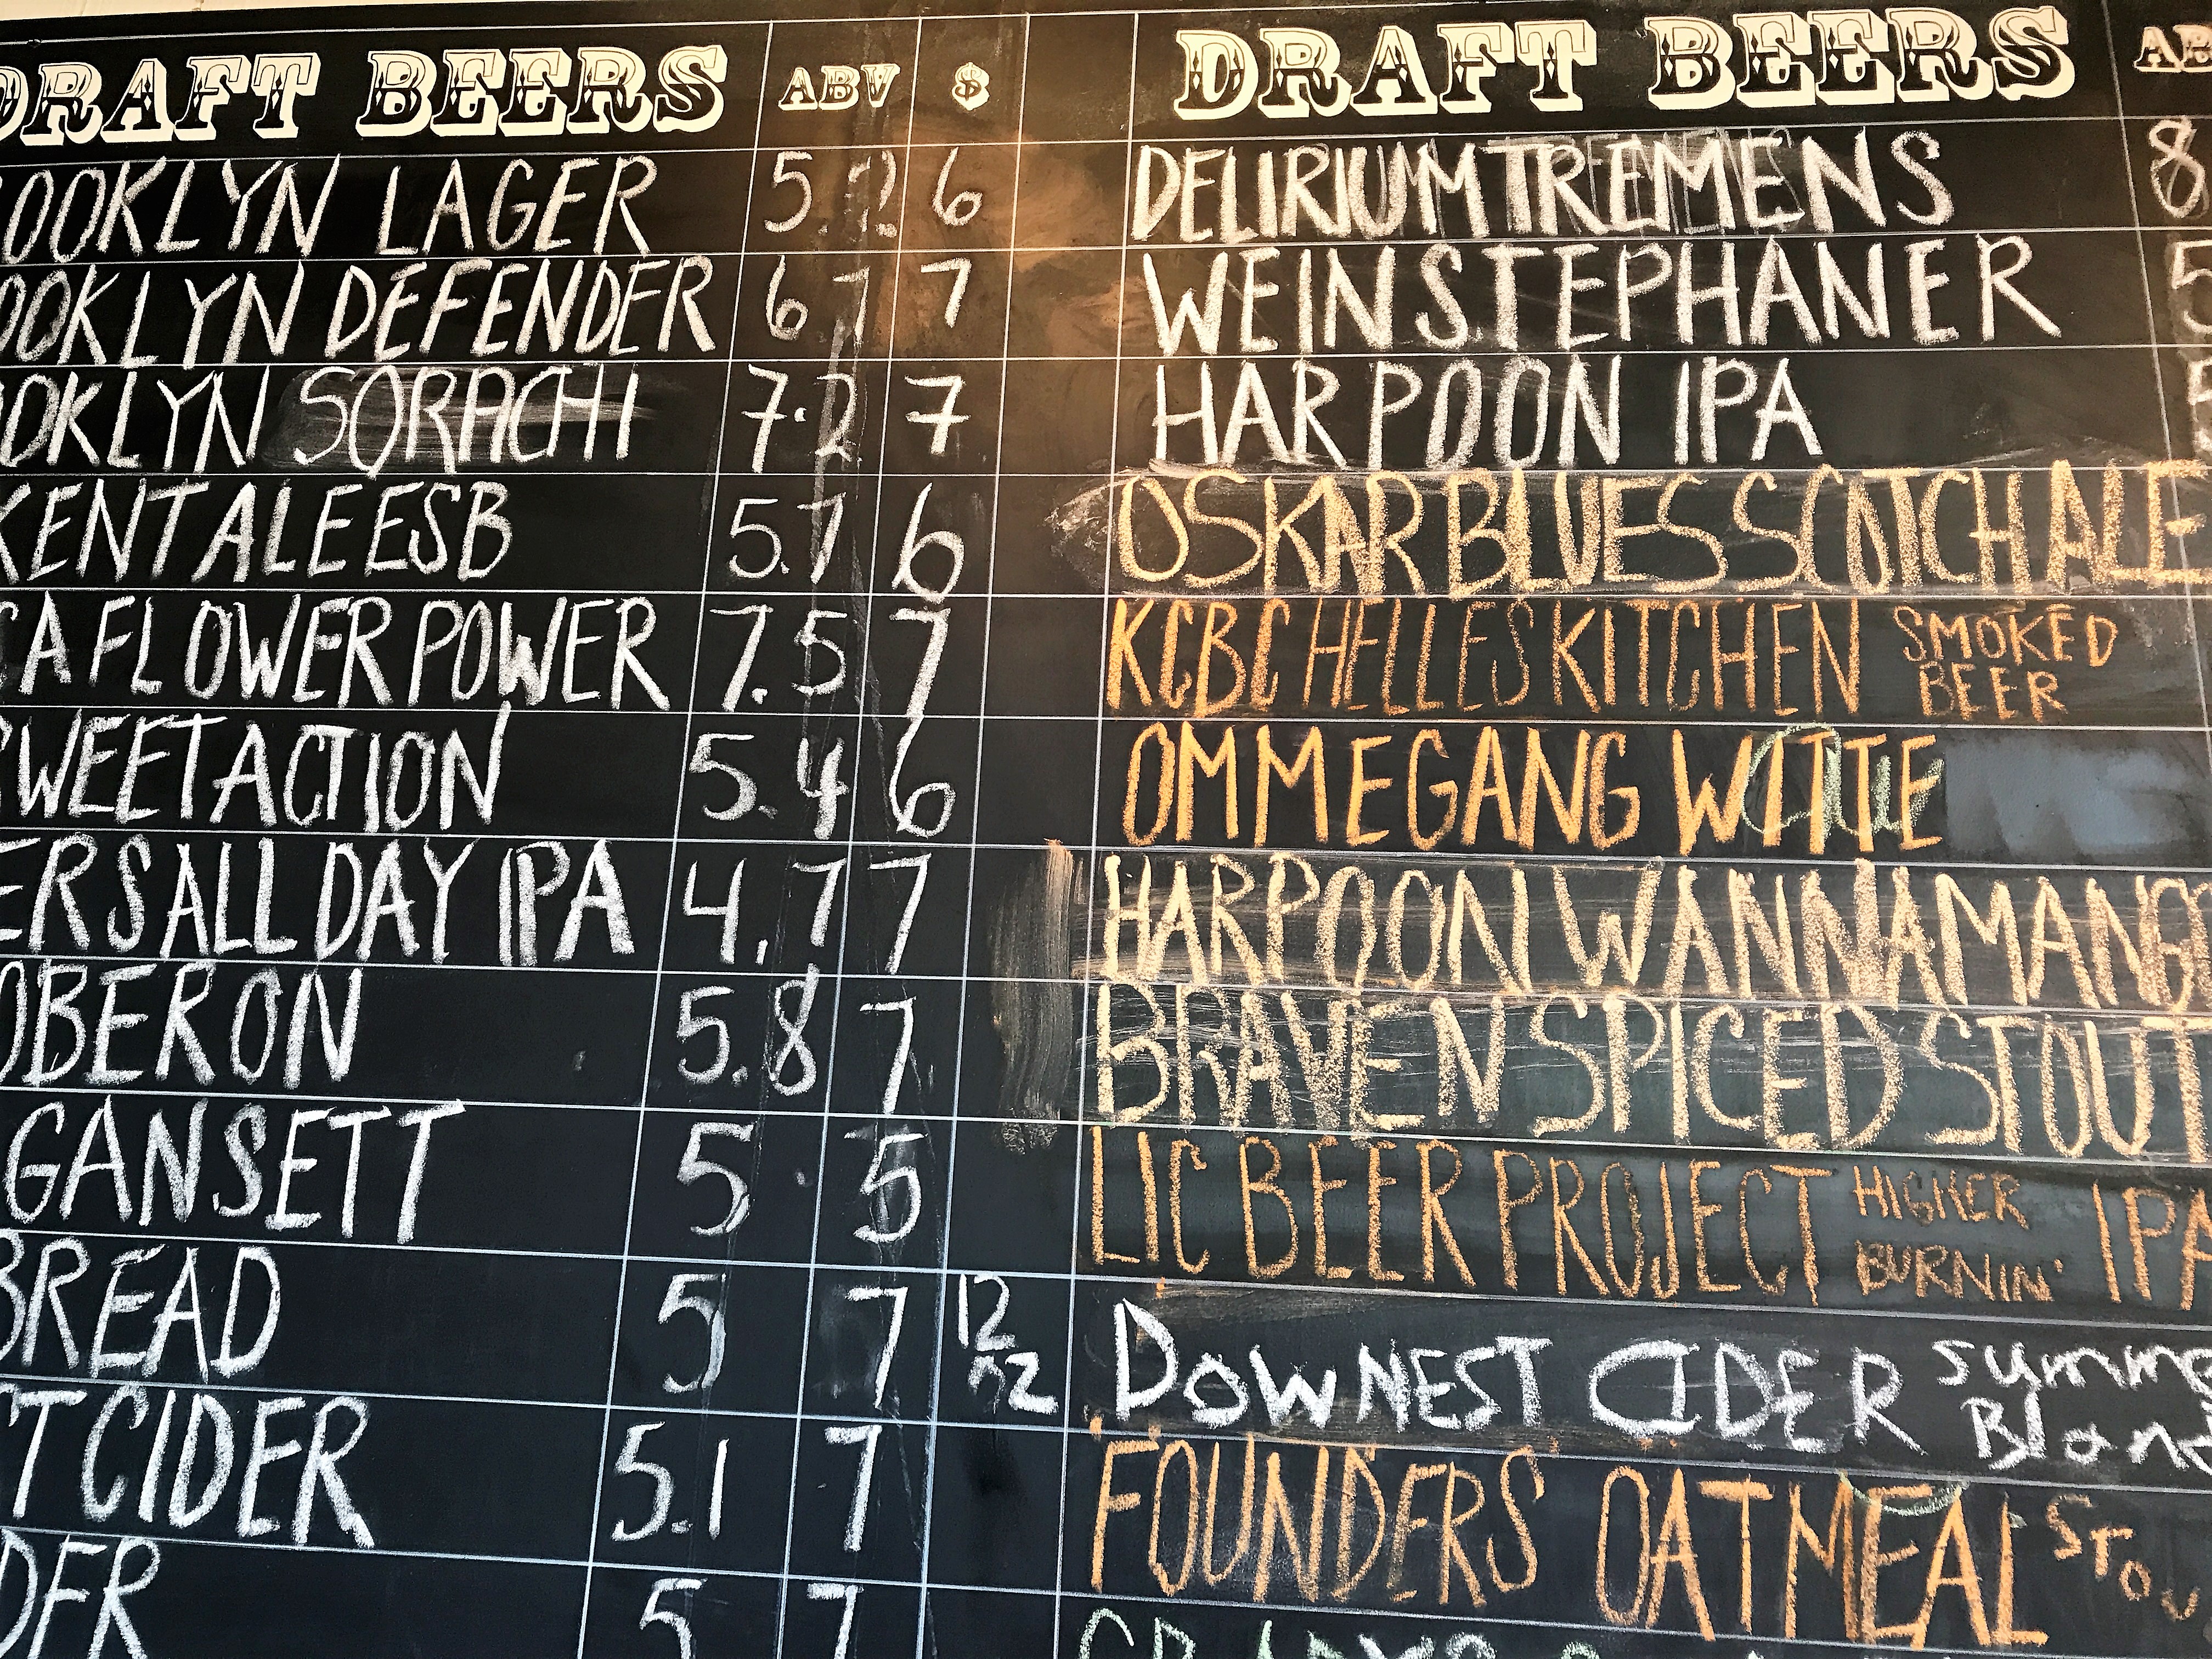 DRAFT BEERS ABV $
OOKLYN LAGER 5.2 6
OOKLYN DEFENDER 6 7 7
OOKLYN SORACHI 7.2 7
KENT ALE ESB 5.1 6
CA FLOWER POWER 7.5 7
SWEET ACTION 5.4 6
ERS ALL DAY IPA 4.7 7
OBERON 5.8 7
GANSETT 5 5
BREAD 5 7 12
T CIDER 5.1 7
DER 5 7
DRAFT BEERS AB
DELIRIUM TREMENS 8
WEINSTEPHANER 5
HARPOON IPA 5
OSKAR BLUES SCOTCH ALE
KCBC HELLES KITCHEN SMOKED
BEER
OMMEGANG WITTE
HARPOON WANNAMANGO
BRAVEN SPICED STOUT
LIC BEER PROJECT HIGHER IPA
BURNIN'
DOWNEST CIDER Summe
Blon
FOUNDERS OATMEAL STOU